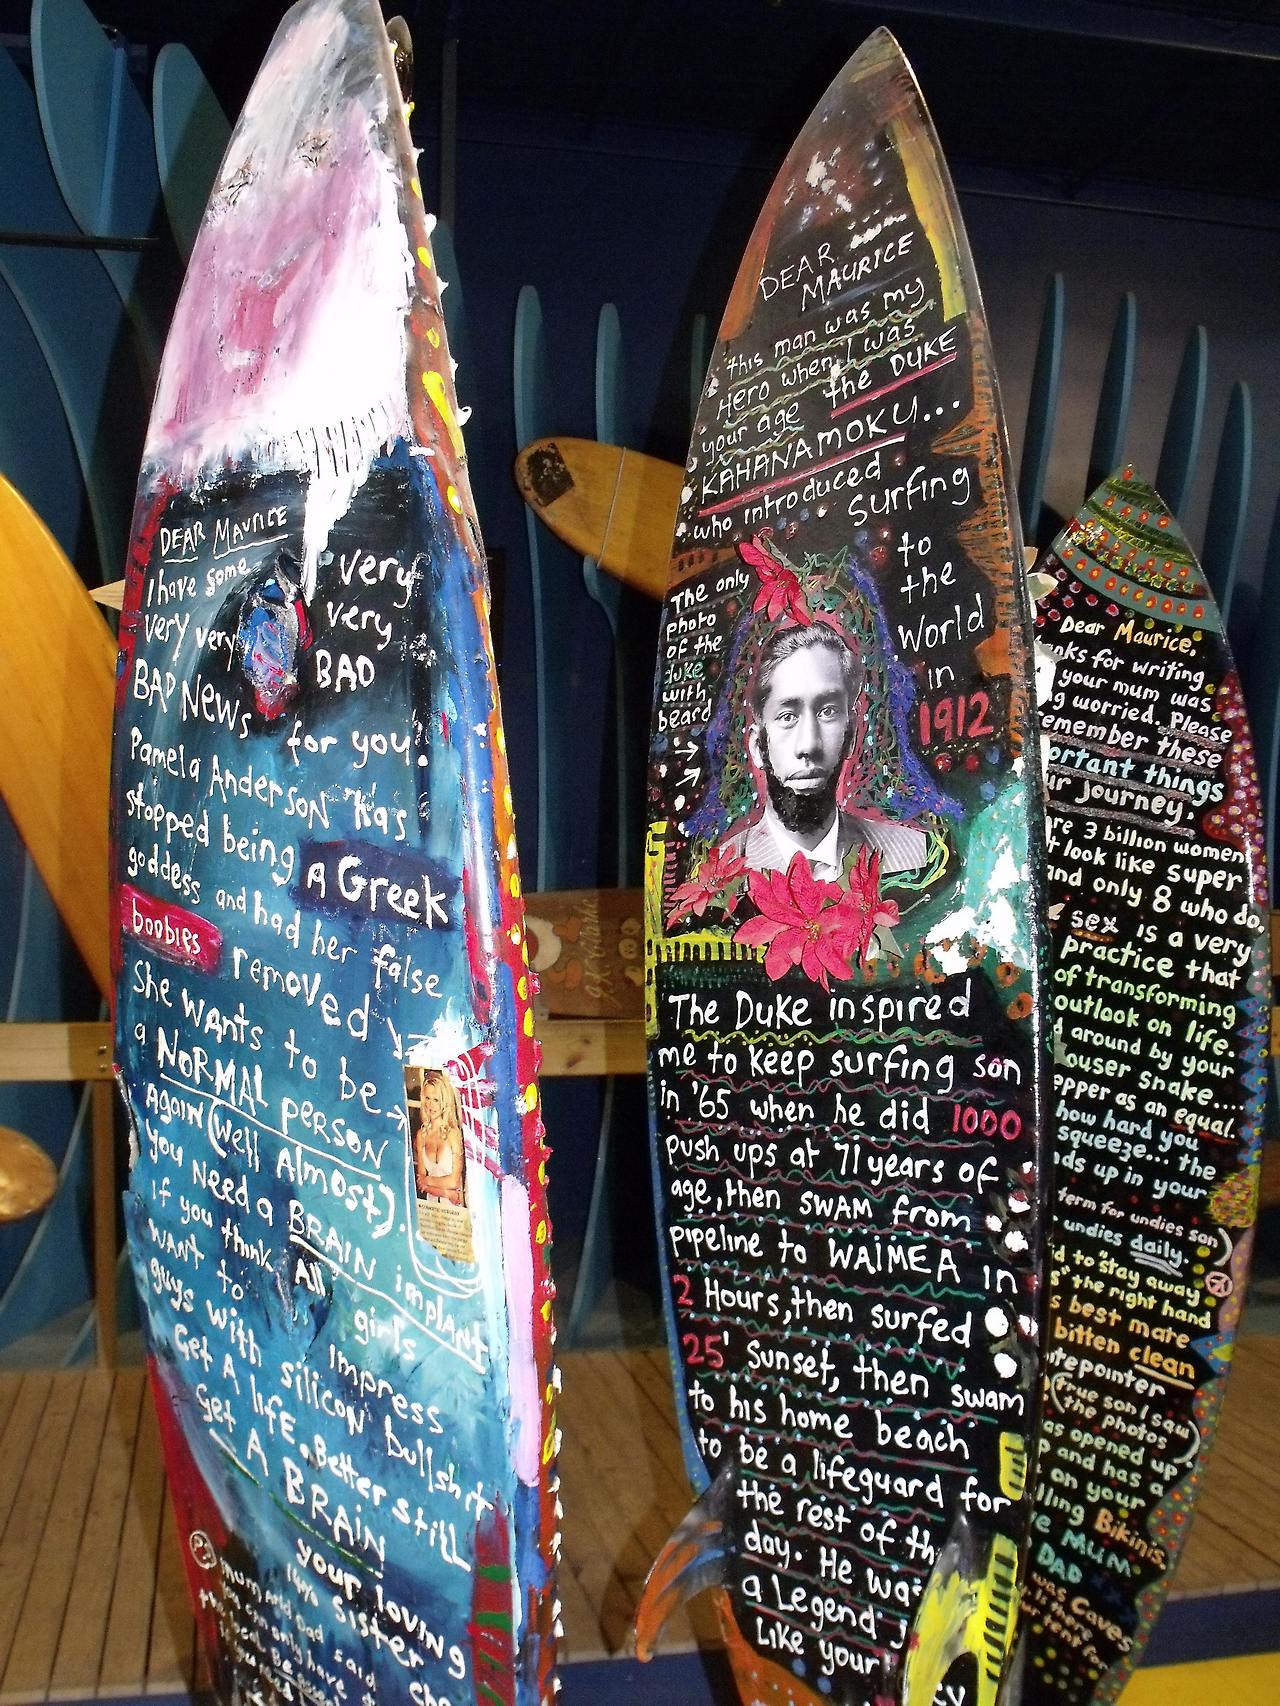 DEAR MAURICE
I have some
very very
very
very
BAD
BAD NEWS
for you!
Pamela Anderson has
stopped being
a Greek
goddess and had her false
boobies
removed
She wants to be
a NORMAL person
Again (well Almost).
you need a BRAIN implant
if you think All girls
want to impress
guys with silicon bullshit
Get A life. Better still
get A BRAIN
your loving
sister
P.S
mum and Dad said
you can only have
DEAR
MAURICE
this man was my
Hero when I was
your age the DUKE
KAHANAMOKU...
who introduced
surfing
to
the
World
in
1912
The only
photo
of the
duke
with
beard
The Duke inspired
me to keep surfing son
in '65 when he did 1000
push ups at 71 years of
age, then swam from
pipeline to WAIMEA in
2 Hours, then surfed
25' Sunset, then swam
to his home beach
to be a lifeguard for
the rest of th
day. He wa
a Legend
Like your
Dear Maurice,
anks for writing
your mum was
g worried. Please
emember these
ortant things
ur journey.
re 3 billion women
t look like super
and only 8 who do.
sex is a very
practice that
of transforming
outlook on life.
around by your
ouser snake....
epper as an equal.
how hard you
squeeze... the
ds up in your
term for undies son)
undies daily.
d to "stay away
s" the right hand
s best mate
bitten clean
tepointer
(true son I saw
the photos)
as opened up
p and has a
on your
lling Bikinis.
e MUM.
DAD
was Caves
is there
ur tent for